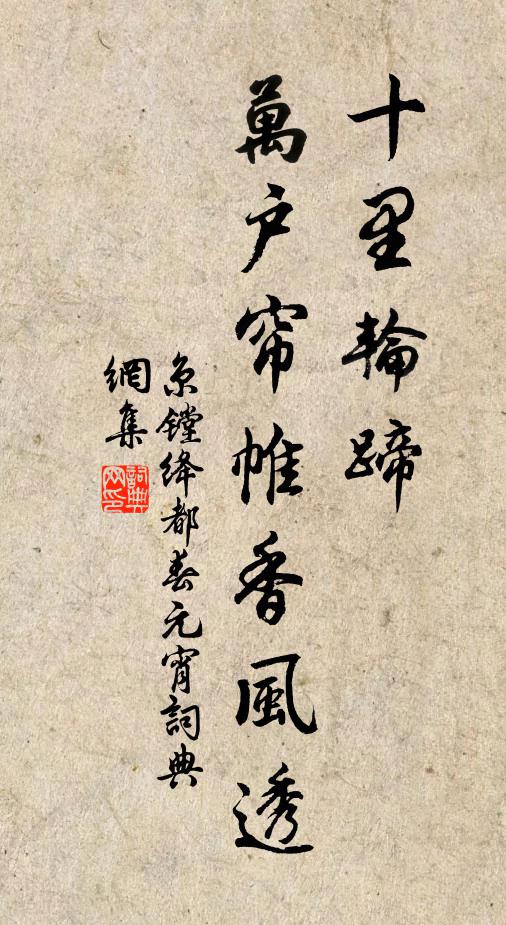 十里輪蹄
萬户帘帷香風透
京鏜绛都春元宵詞典
網集
詞典網印